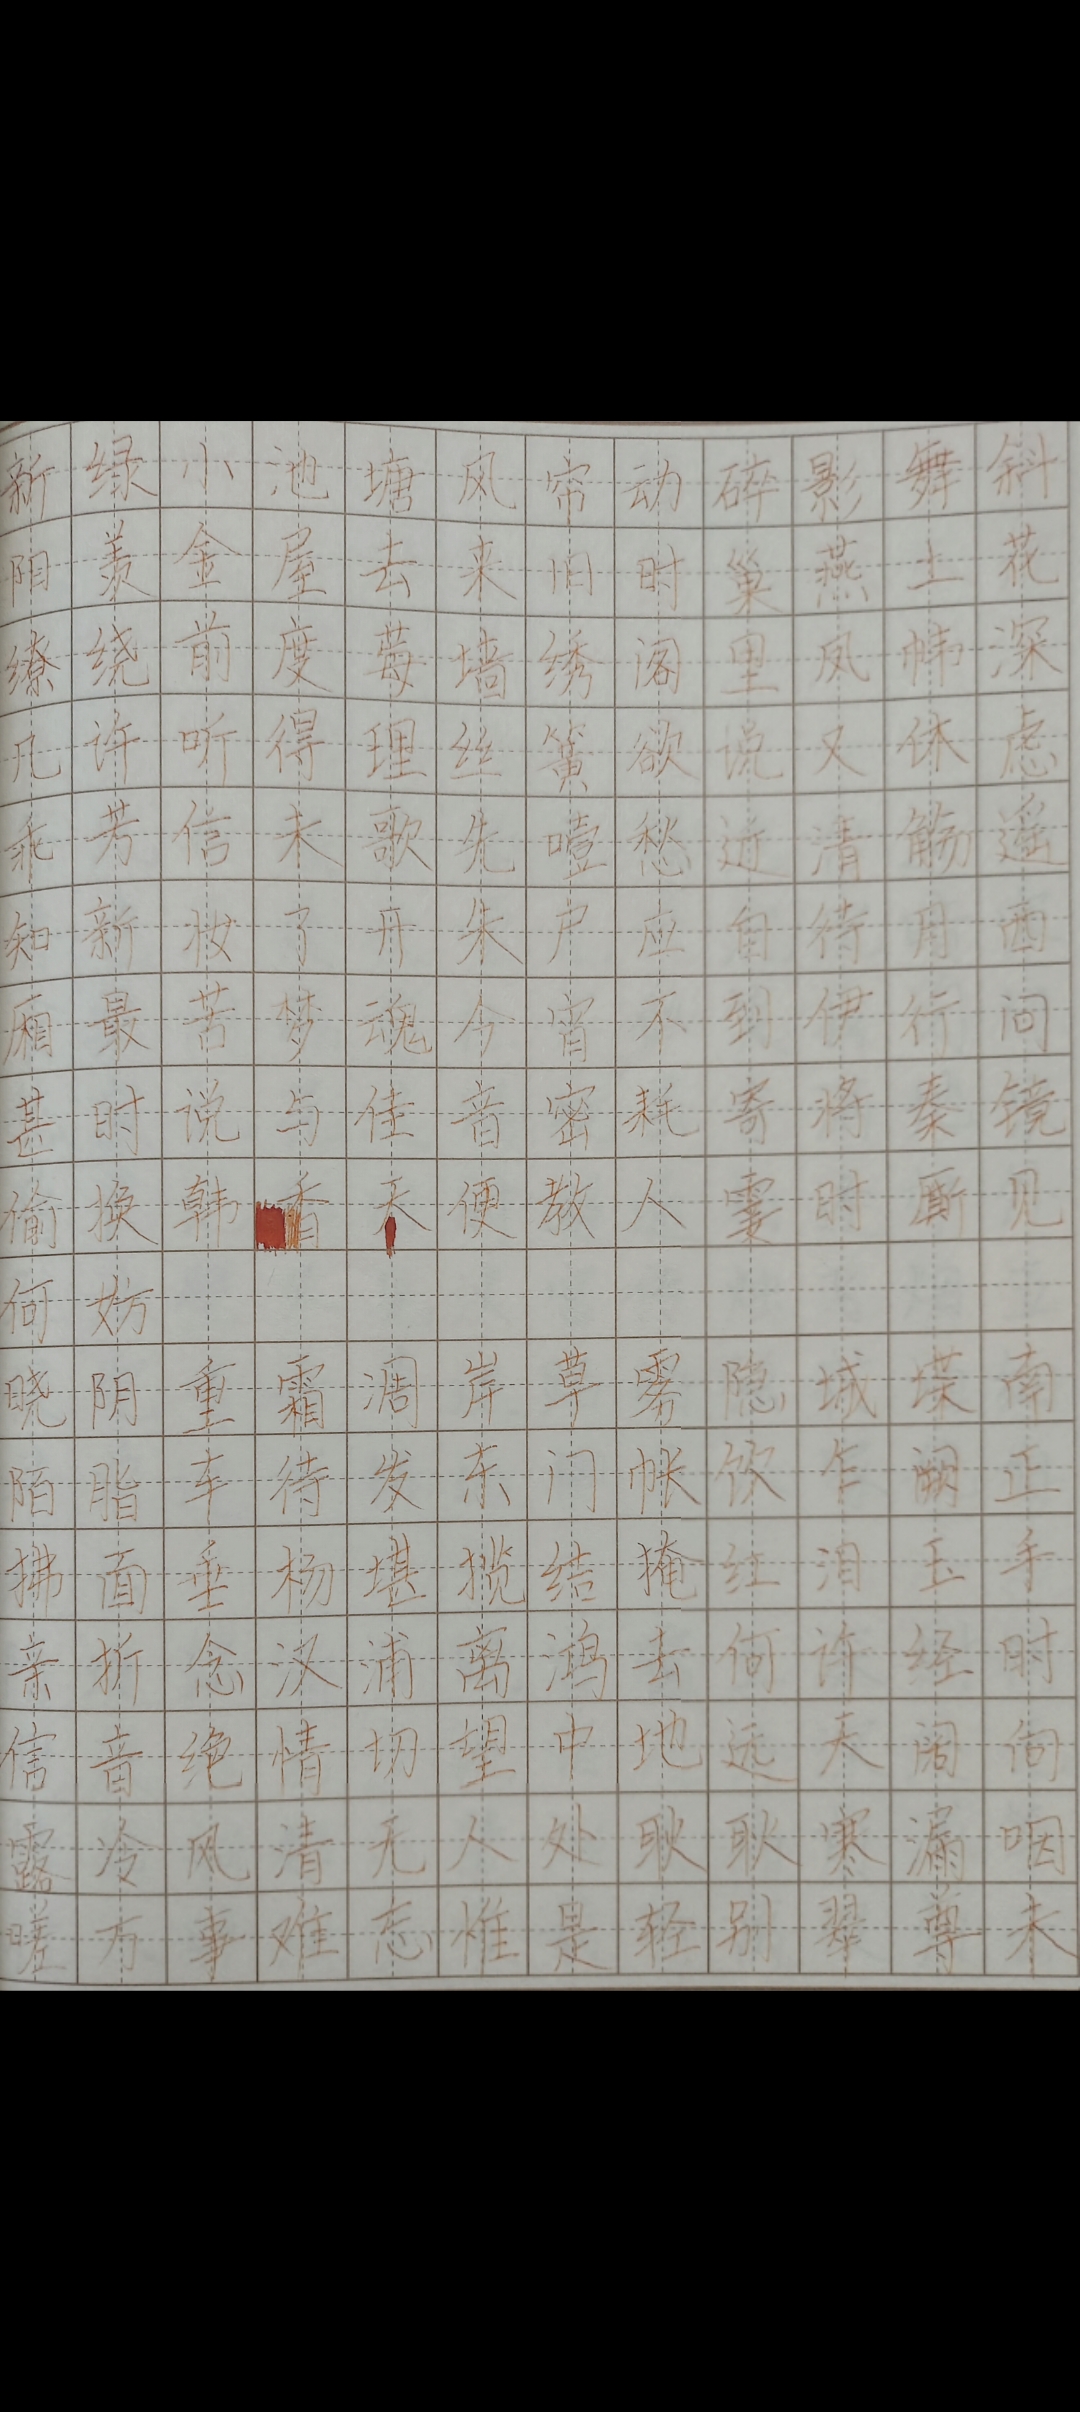 新绿小池塘风帘动碎影舞斜
阳羡金屋去来旧时巢燕土花
缭绕前度莓墙绣阁里凤帏深
几许听得理丝簧欲说又休虑
乖芳信未歌先噎愁近清觞遥
知新妆了开朱户应自待月西
厢最苦梦魂今宵不到伊行问
甚时说与佳音密耗寄将秦镜
偷换韩香天便教人霎时厮见
何妨
晓阴重霜凋岸草雾隐城堞南
陌脂车待发东门帐饮乍阕正
拂面垂杨堪揽结掩红泪玉手
亲折念汉浦离鸿去何许经时
信音绝情切望中地远天阔向
露冷风清无人处耿耿寒漏咽
嗟万事难忘惟是轻别翠尊未